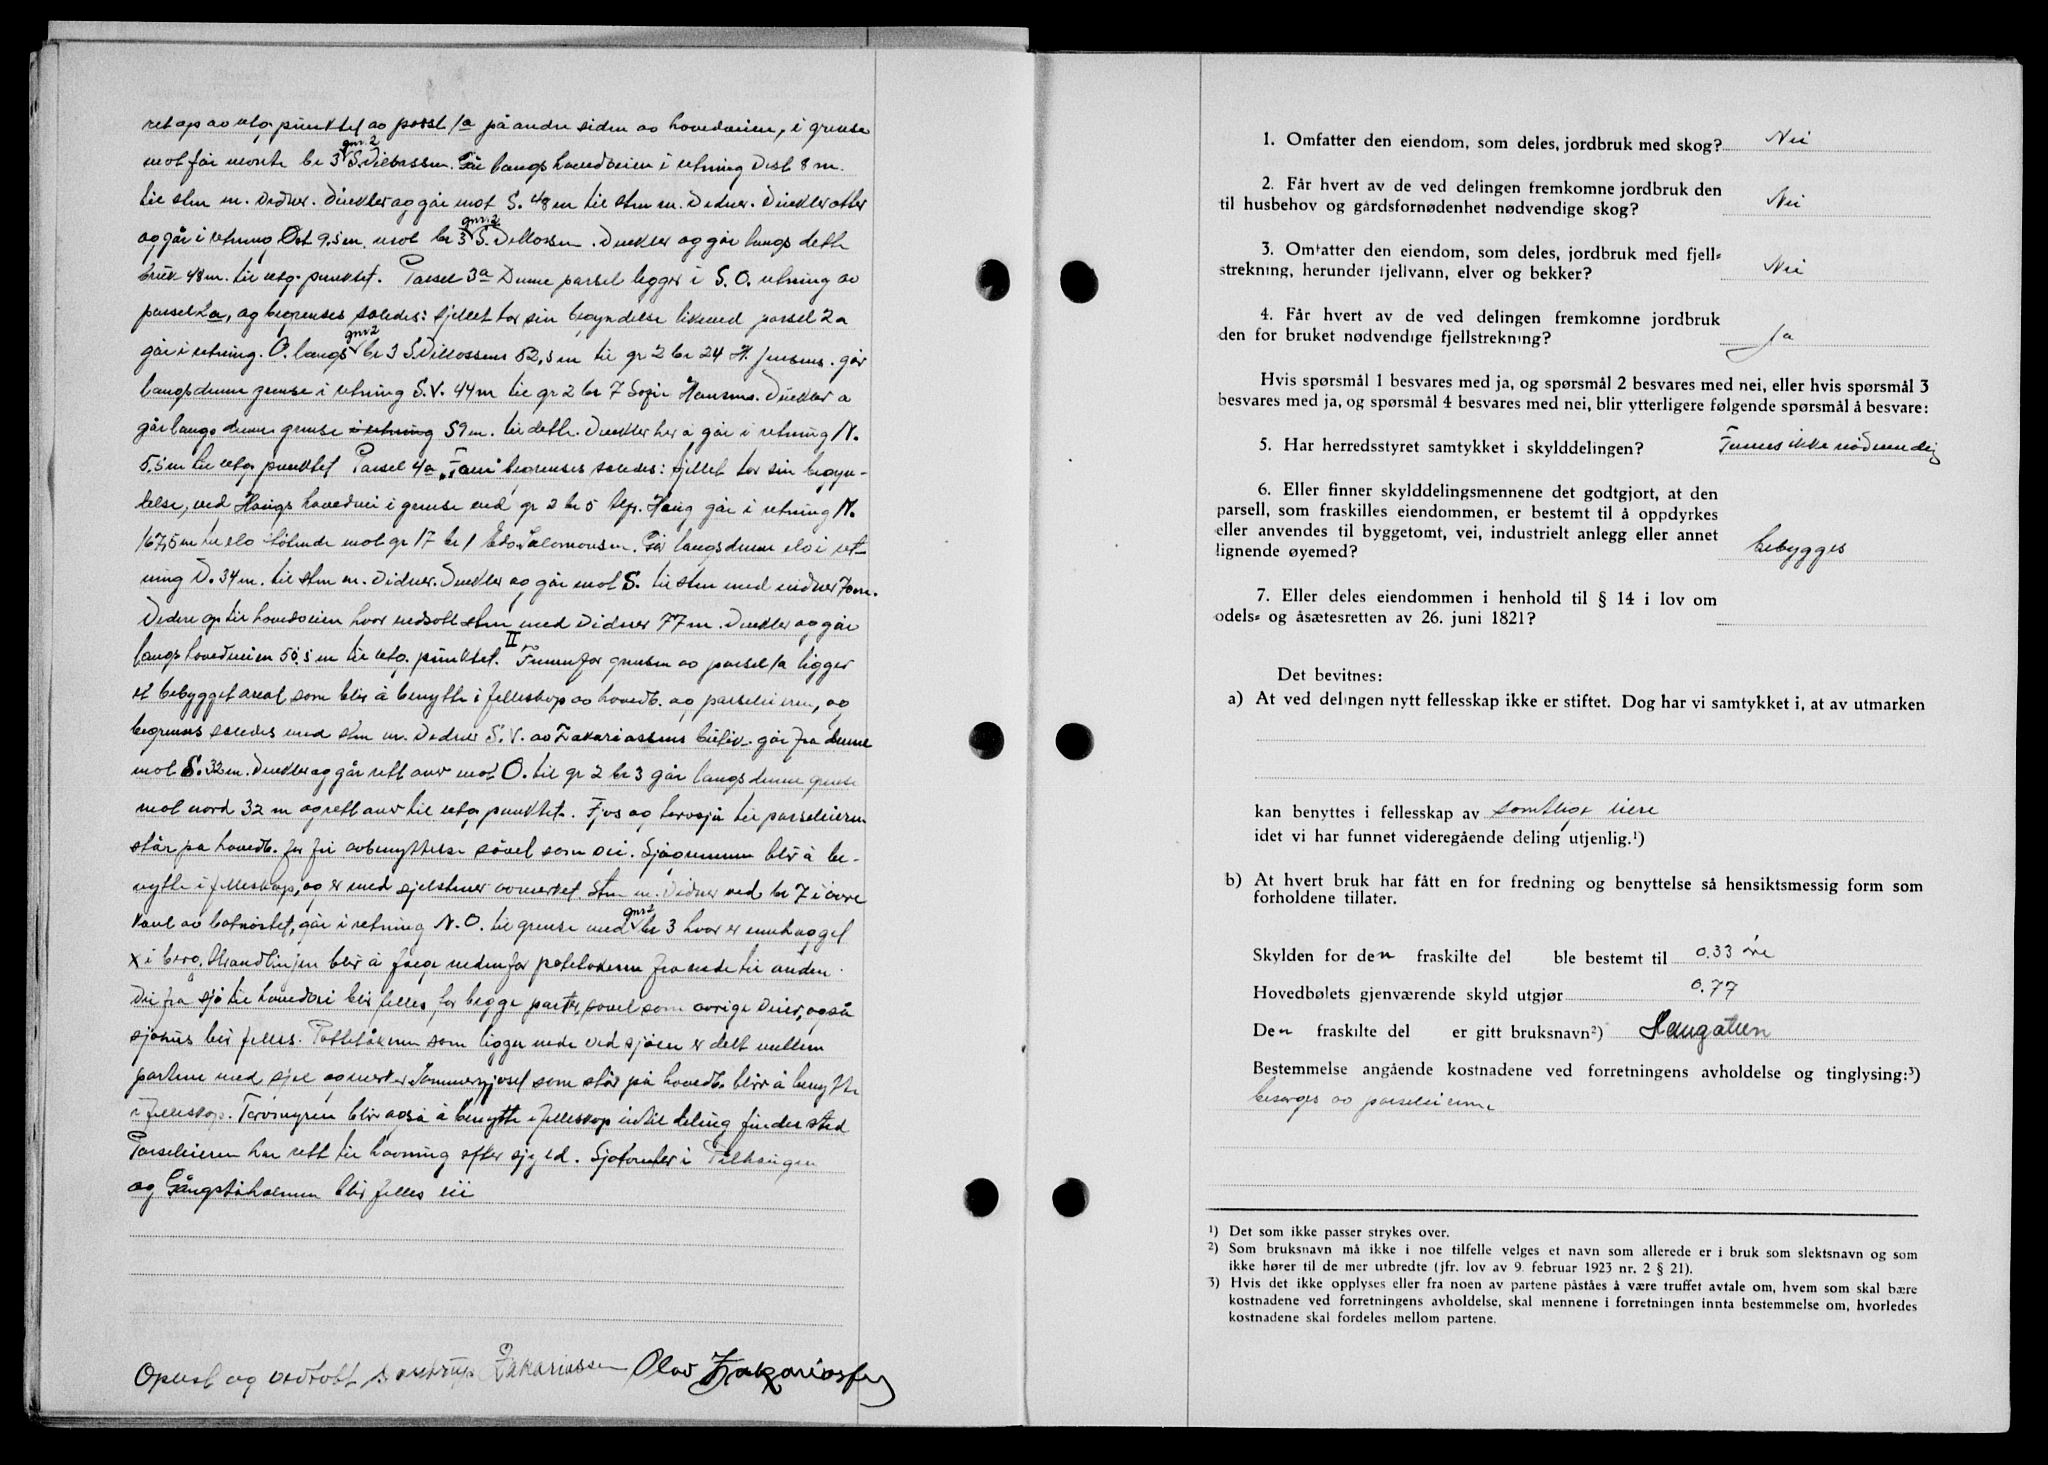 ret op av utg. punktet av possl 1a på andre siden av hovedveien, i grense
mot før nevnte br 3 gnr. 2 S. Villassen. Går langs hovedveien i retning Vest 8 m.
til sten m. Vidner. Vinkler og går mot S. 48 m til sten m. Vidner. Vinkler atter
og går i retning Øst 9,5 m. mot br 3 gnr. 2 S. Villassen. Vinkler og går langs dette
bruk 48 m. til utg. punktet. Parsel 3a Denne parsel ligger i S. O. retning av
parsel 2a, og begrenses således: fjellet tar sin begyndelse likeved parsel 2a
går i retning. O. langs gnr 2 br 3 S. Villassens 52,5 m til gr 2 br 24 H. Jensens. går
langs denne grense i retning S.V. 44 m til gr 2 br 7 Sofie Hansens. Vinkler a
går langs denne grense i retning 59 m. til dette. Vinkler her å går i retning N.
5,5 m til utg. punktet Parsel 4a begrenses således: fjellet tar sin begyn-
delse, ved Haugs hovedvei i grense ved gr 2 br 5 Haug går i retning N.
167,5 m til elv støtende mot gr 17 br 1 Edv. Salomonsen. Går langs denne elv i ret-
ning V. 34 m. til sten m. Vidner. Vinkler og går mot S. til sten med vidner 70 m.
Videre op til hovedveien hvor nedsatt sten med Vidner 77 m. Vinkler og går
langs hovedveien 50,5 m til utg. punktet. II Innenfor grensen av parsel 1a ligger
et bebygget areal som blir å benytte i felleskap av hovedb. og parseleieren, og
begrenses således med sten m. Vidner S.V. av Zakariassens går fra denne
mot S. 32 m. Vinkler og går rett over mot O. til gr 2 br 3 går langs denne grense
mot nord 32 m og rett over til utg. punktet. Fjøs og torvsjå til parseleieren
står på hovedb. for fri avbenyttelse såvel som vei. Sjøgrunnen blir å be-
nytte i felleskap, og er med sjelstener avmerket. Sten m. Vidner ved br 7 i øvre
kant av båtnøstet, går i retning N.O. til grense med gnr 2 br 3 hvor er innhugget
x i berg. Strandlinjen blir å følge nedenfor potetakeren fra ende til anden.
Vei fra sjø til hovedvei blir felles for begge parter, såvel som øvrige veier, også
sjøhus blir felles. Potetåkeren som ligger nede ved sjøen er delt mellem
partene med sjel og merker som står på hovedb. blir å benytte
i felleskap. Torvmyren blir også å benytte i felleskap indtil deling finder sted
Parseleieren har rett til havning efter skyld. Sjøtomter i
og blir felles eie
Oplest og vedtatt Zakariassen Olav Zakariassen
1. Omfatter den eiendom, som deles, jordbruk med skog? Nei
2. Får hvert av de ved delingen fremkomne jordbruk den
til husbehov og gårdsfornødenhet nødvendige skog? Nei
3. Omfatter den eiendom, som deles, jordbruk med fjell-
strekning, herunder fjellvann, elver og bekker? Nei
4. Får hvert av de ved delingen fremkomne jordbruk
den for bruket nødvendige fjellstrekning? Ja
Hvis spørsmål 1 besvares med ja, og spørsmål 2 besvares med nei, eller hvis spørsmål 3
besvares med ja, og spørsmål 4 besvares med nei, blir ytterligere følgende spørsmål å besvare:
5. Har herredsstyret samtykket i skylddelingen? Finnes ikke nødvendig
6. Eller finner skylddelingsmennene det godtgjort, at den
parsell, som fraskilles eiendommen, er bestemt til å oppdyrkes
eller anvendes til byggetomt, vei, industrielt anlegg eller annet
lignende øyemed? bebygges
7. Eller deles eiendommen i henhold til § 14 i lov om
odels- og åsætesretten av 26. juni 1821?
Det bevitnes:
a) At ved delingen nytt fellesskap ikke er stiftet. Dog har vi samtykket i, at av utmarken
kan benyttes i fellesskap av samtlige eiere
idet vi har funnet videregående deling utjenlig.¹)
b) At hvert bruk har fått en for fredning og benyttelse så hensiktsmessig form som
forholdene tillater.
Skylden for den fraskilte del ble bestemt til 0.33 øre
Hovedbølets gjenværende skyld utgjør 0.77
Den fraskilte del er gitt bruksnavn²) Haugatun
Bestemmelse angående kostnadene ved forretningens avholdelse og tinglysing:³)
besørges av parseleierne
¹) Det som ikke passer strykes over.
²) Som bruksnavn må ikke i noe tilfelle velges et navn som allerede er i bruk som slektsnavn og som
ikke hører til de mer utbredte (jfr. lov av 9. februar 1923 nr. 2 § 21).
³) Hvis det ikke opplyses eller fra noen av partene påståes å være truffet avtale om, hvem som skal bære
kostnadene ved forretningens avholdelse, skal mennene i forretningen innta bestemmelse om, hvorledes
kostnadene skal fordeles mellom partene.